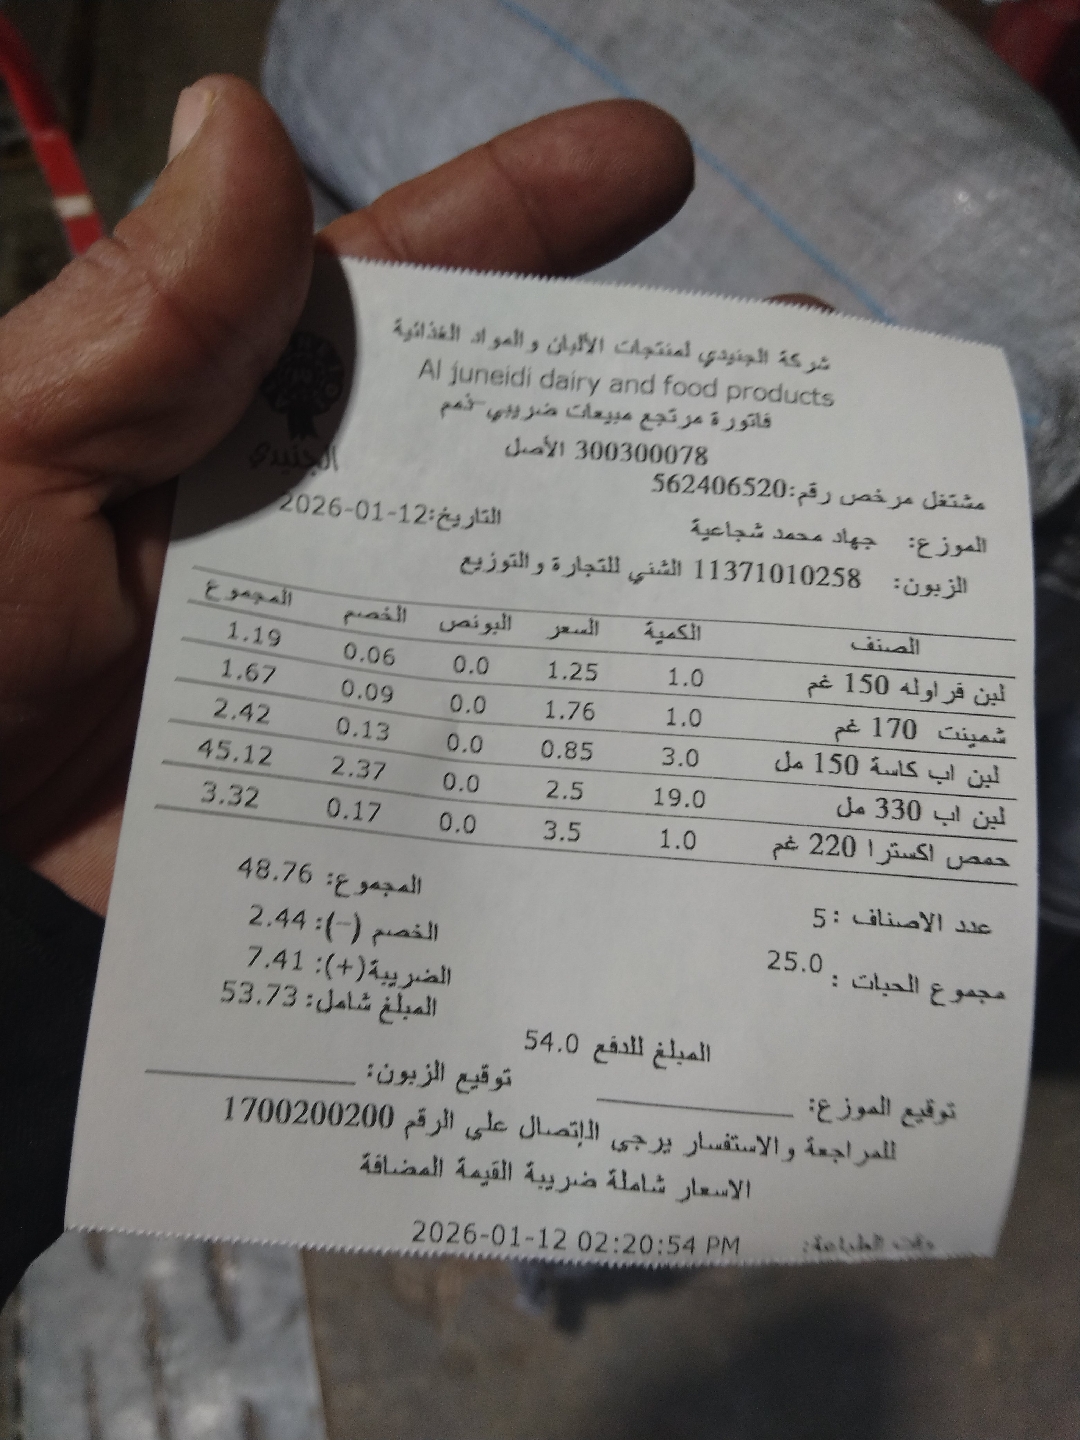 شركة الجنيدي لمنتجات الألبان والمواد الغذائية
Al juneidi dairy and food products
فاتورة مرتجع مبيعات ضريبي-ذمم
300300078 الأصل
الجنيدي
مشتغل مرخص رقم:562406520
التاريخ:2026-01-12
الموزع: جهاد محمد شجاعية
الزبون: 11371010258 الشني للتجارة والتوزيع
الصنف الكمية السعر البونص الخصم المجموع
لبن فراوله 150 غم 1.0 1.25 0.0 0.06 1.19
شمينت 170 غم 1.0 1.76 0.0 0.09 1.67
لبن اب كاسة 150 مل 3.0 0.85 0.0 0.13 2.42
لبن اب 330 مل 19.0 2.5 0.0 2.37 45.12
حمص اكسترا 220 غم 1.0 3.5 0.0 0.17 3.32
المجموع: 48.76
عدد الاصناف :5
الخصم (-): 2.44
مجموع الحبات : 25.0
الضريبة(+): 7.41
المبلغ شامل: 53.73
المبلغ للدفع 54.0
توقيع الموزع: توقيع الزبون:
للمراجعة والاستفسار يرجى الإتصال على الرقم 1700200200
الاسعار شاملة ضريبة القيمة المضافة
وقت الطباعة: 2026-01-12 02:20:54 PM